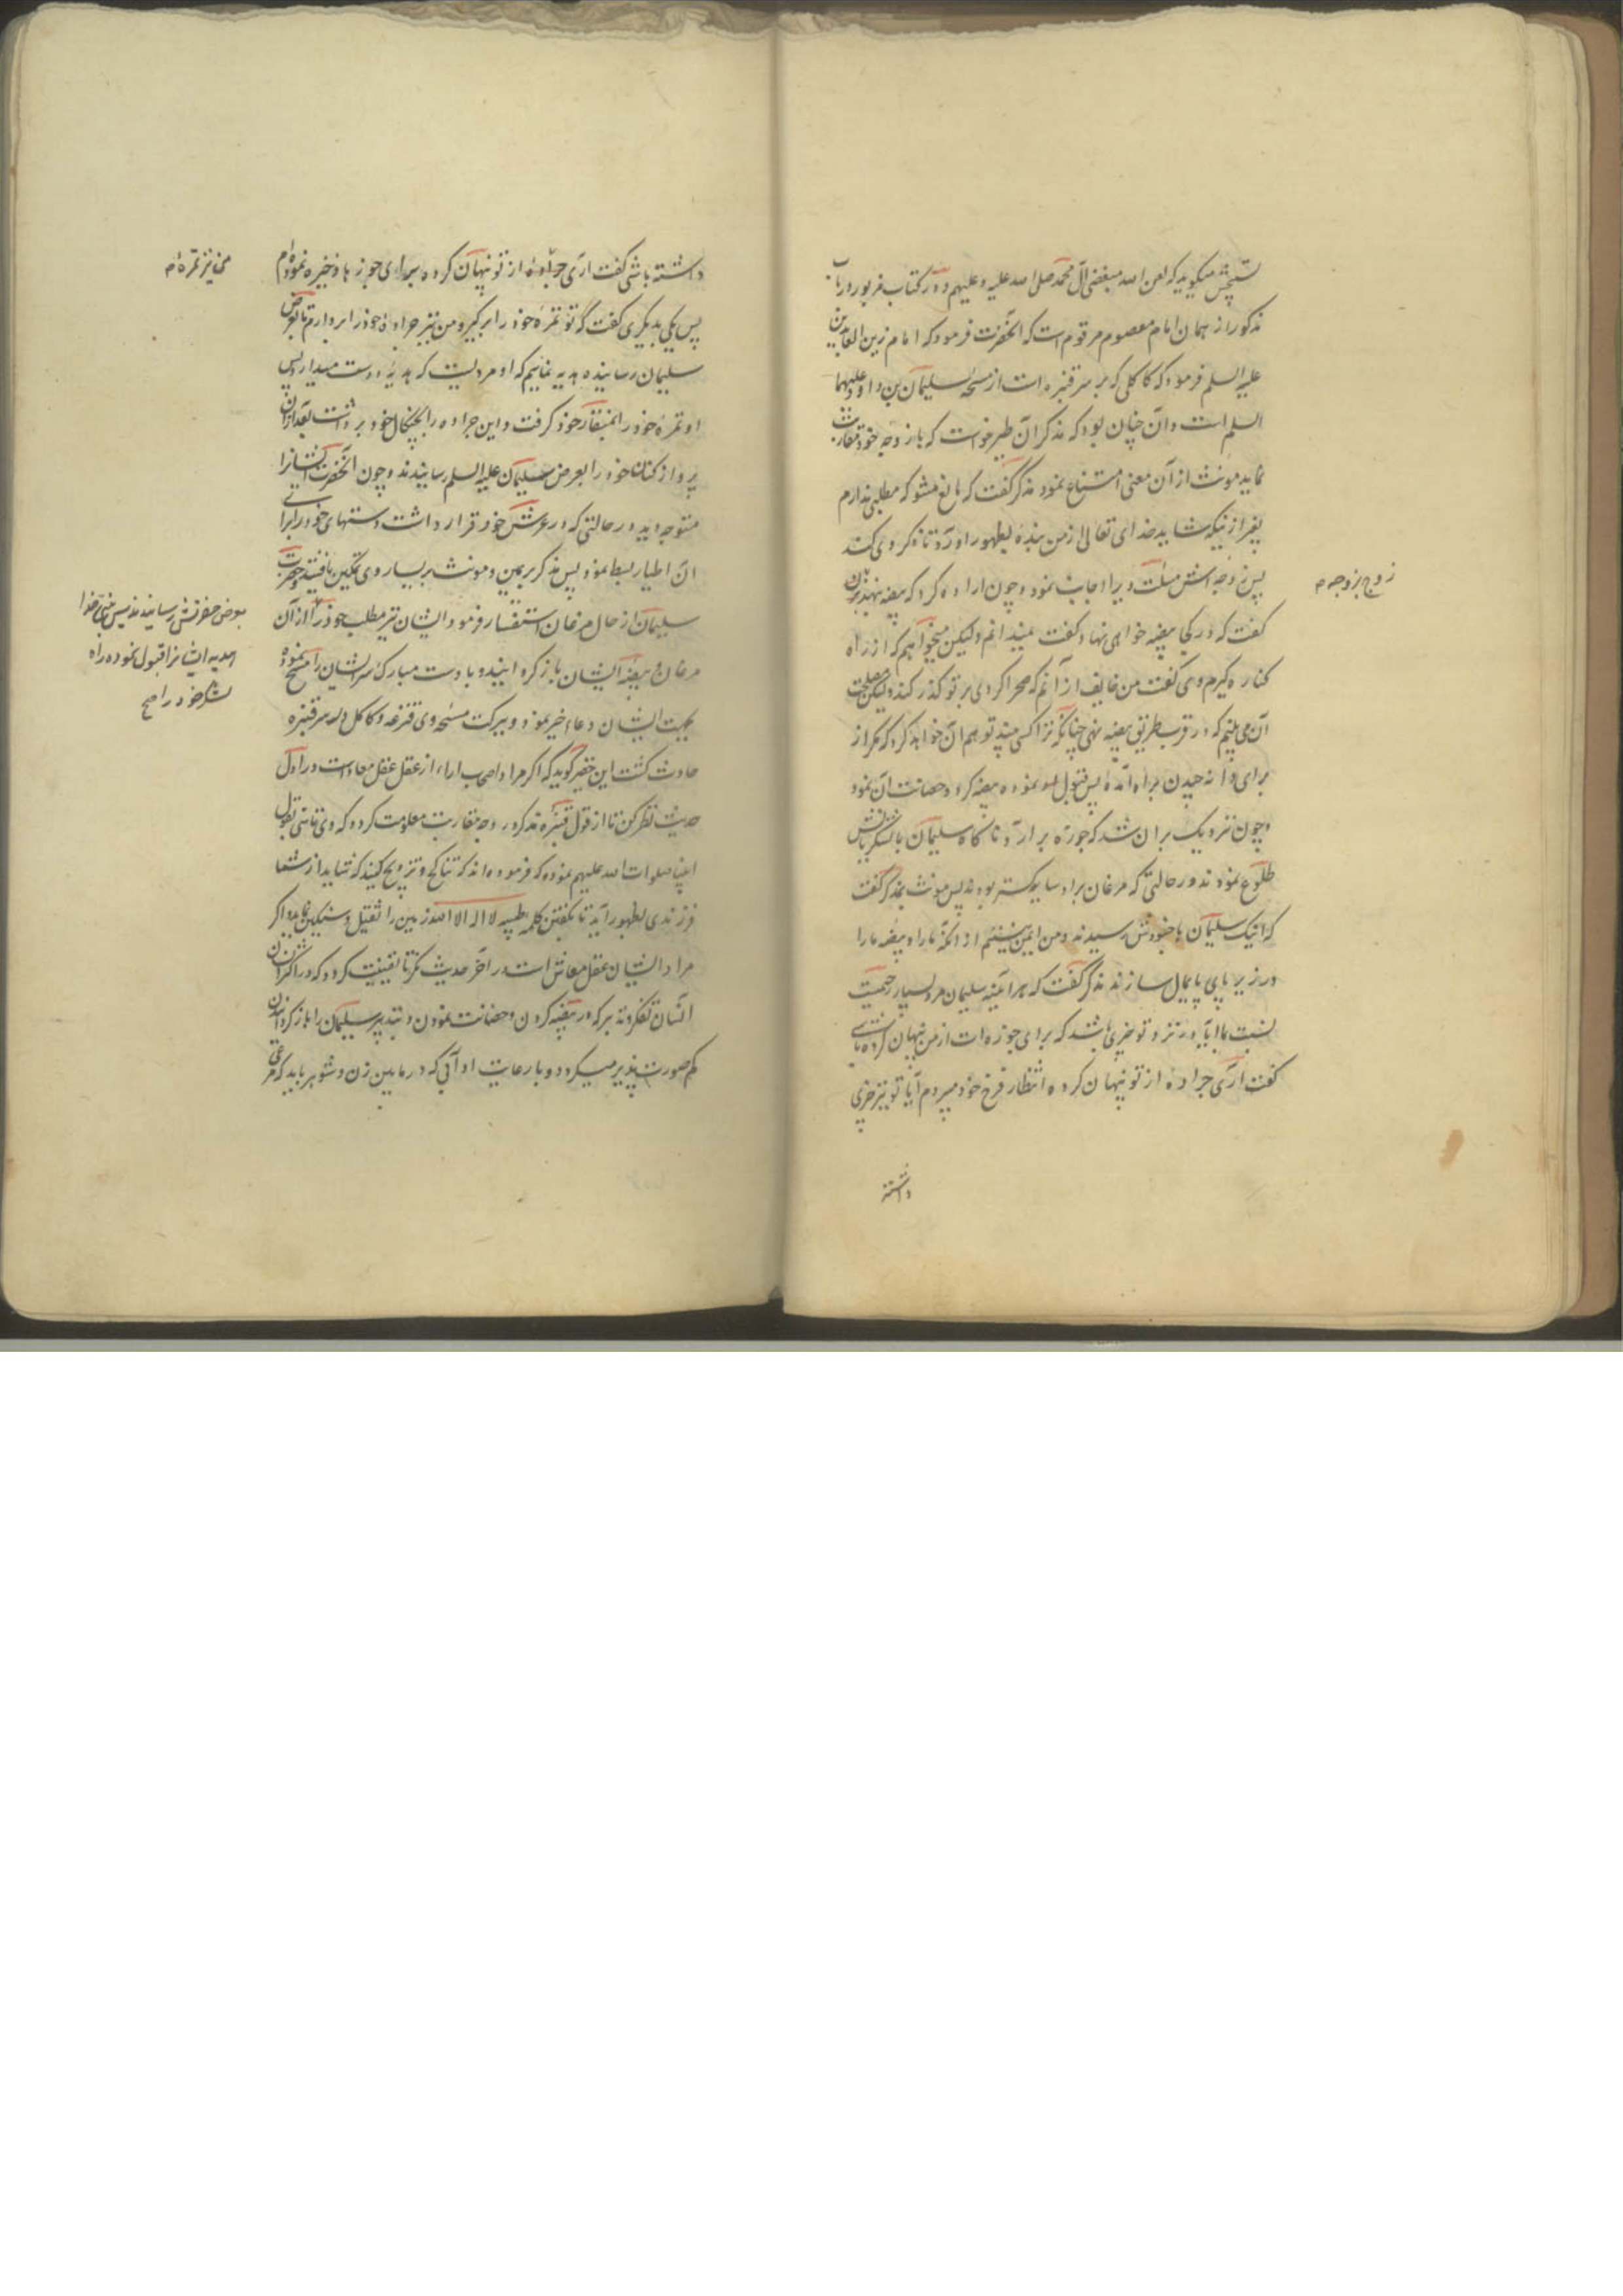 تسبیحش میگوید که لعن الله مبغضی آل محمد صلی الله علیه و علیهم و در کتاب مزبور در باب
مذکور از همان امام معصوم مرقوم است که آنحضرت فرمود که امام زین العابدین
علیه السلم فرمود که کاکلی که بر سر قنبره است از مسحه سلیمان بن داود علیهما
السلم است و آن چنان بود که مذکر آن طیر خواست که با زوجه خود مقاربت
نماید مونث از آن معنی امتناع نمود مذکر گفت که مانع مشو که مطلبی ندارم
بغیر از نیکه شاید خدای تعالی از من بنده بظهور آورد تا ذکر وی کند
پس زوجه اش مسئلت ویرا اجابت نمود و چون اراده کرد که بیضه نهد
زوج بزوجه
گفت که در کجا بیضه خواهی نهاد گفت نمیدانم ولیکن میخواهم که از راه
کناره گیرم وی گفت من خایف از آنم که صحرا کردی بر تو گذر کند ولیکن مصلحت
آن می بینم که در قرب طریق بیضه نهی چنانکه ترا کسی بیند توهم آن خواهد کرد که مگر از
برای دانه چیدن براه آمده پس قبول نموده بیضه کرد و حضانت آن نمود
و چون نزدیک بران شد که جوزه برآرد ناگاه سلیمان با لشکریانش
طلوع نمودند در حالتی که مرغان براو سایه گستر بودند پس مونث بمذکر گفت
که اینک سلیمان با جنودش رسیدند و من ایمن نیستم از آنکه مارا و بیضه مارا
در زیر پای پایمال سازند مذکر گفت که هرآینه سلیمان مرد بسیار رحمیست
نسبت بما آیا در نزد تو چیزی باشد که برای جوزه ات از من پنهان کرده باشی
گفت آری جراده از تو پنهان کرده انتظار فرخ خود میبردم آیا تو نیز چیزی
داشته
داشته باشی گفت آری از تو پنهان کرده برای جوزها ذخیره نموده ام
من نیز تمره ام
پس یکی بدیگری گفت که تو تمره خود را برگیر و من نیز جراده خود را بردارم تا بعرض
سلیمان رسانیده هدیه نمائیم که او مردیست که هدیه دوست میدارد پس
او تمره خود را بمنقار خود گرفت و این جراده را بچنگال خود برداشت بعد از آن
پرواز کنان خود را بعرض سلیمان علیه السلم رسانیدند و چون آنحضرت ایشانرا
متوجه دید در حالتی که در عرش خود قرار داشت دستهای خود را برای
آن اطیار بسط نمود پس مذکر بر یمین و مونث بر یسار وی تمکین یافتند و حضرت
سلیمان از حال مرغان استفسار فرمود ایشان نیز مطلب خود را
بعرض حضرتش رسانیدند پس نبی خدا
هدیه ایشانرا قبول نموده راه
لشکر خود را صح
از آن
مرغان و بیضه ایشان باز گردانید و با دست مبارک سر ایشان را مسح نموده
بجهت ایشان دعاء خیر نمود و ببرکت مسحه وی قنزعه و کاکل در سر قنبره
حادث گشت این حقیر گوید که اگر مراد اصحاب اراء از عقل عقل معاد است در اول
حدیث نظر کن تا از قول قنبره مذکر در وجه مقاربت معلومت گردد که وی تاسی بقول
انبیا صلوات الله علیهم نموده که فرموده اند که تناکح و تزویج کنید که شاید از شما
فرزندی بظهور آید تا بگفتن کلمه طیبه لا اله الا الله زمین را ثقیل و سنگین نماید و اگر
مراد ایشان عقل معاش است در آخر حدیث نگر تا یقینت گردد که در اکثر
انسان تفکر و تدبیر که در بیضه کردن و حضانت نمودن و بتدبیر سلیمان را باز گردانیدن
کم صورت پذیر میگردد و با رعایت آدابی که در مابین زن و شوهر باید که مرعی